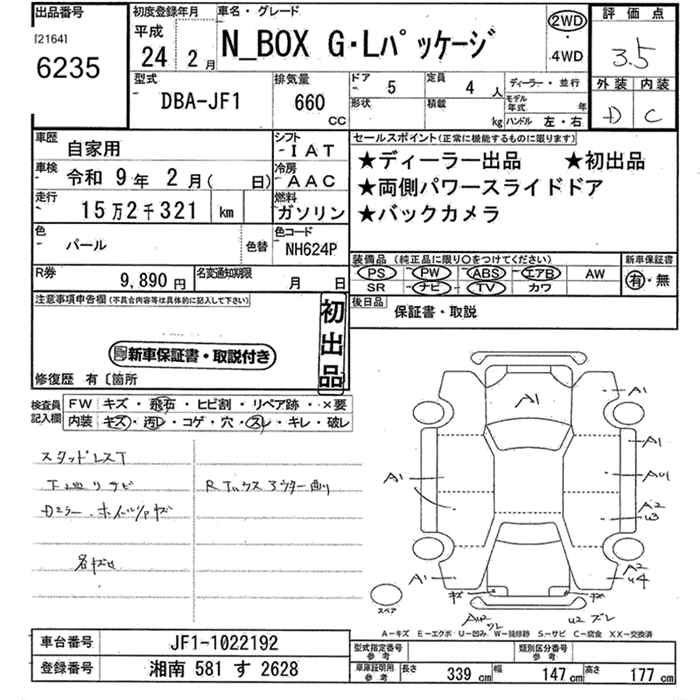 出品番号
[2164]
6235
初度登録年月
平成
24年 2月
車名・グレード
N_BOX G・Lパッケージ
2WD
・
4WD
評価点
3.5
外装 内装
D C
型式
DBA-JF1
排気量
660
CC
ドア 5
定員 4人
形状
積載 kg
ディーラー・並行
モデル年式 年
ハンドル 左・右
車歴 自家用
シフト IAT
車検 令和 9年 2月( 日)
冷房 AAC
走行 15万2千321 km
燃料 ガソリン
色 パール 色替
色コード NH624P
R券 9,890円
名変通知期限 月 日
セールスポイント(正常に機能するものに限ります)
★ディーラー出品 ★初出品
★両側パワースライドドア
★バックカメラ
装備品(純正品に限り○をつけてください)
新車保証書
PS PW ABS エアB AW
SR ナビ TV カワ
有・無
後日品
保証書・取説
注意事項申告欄(不具合内容等は具体的に記入して下さい)
新車保証書・取説付き
初出品
修復歴 有〔箇所
検査員記入欄
FW キズ・飛石・ヒビ割・リペア跡・×要
内装 キズ・汚レ・コゲ・穴・スレ・キレ・破レ
スタッドレスT
下廻りサビ
Dミラー・ホイルリアキズ
A1
A1
A1
A1
AU1
A2
U3
A1
A2
U4
キズ
スペア
U2 ズレ
A-キズ E-エクボ U-凹み W-補修跡 S-サビ C-腐食 XX-交換済
車台番号 JF1-1022192
登録番号 湘南 581 す 2628
型式指定番号
参考
類別区分番号
参考
車庫証明用
参考
長さ 339cm 幅 147cm 高さ 177cm